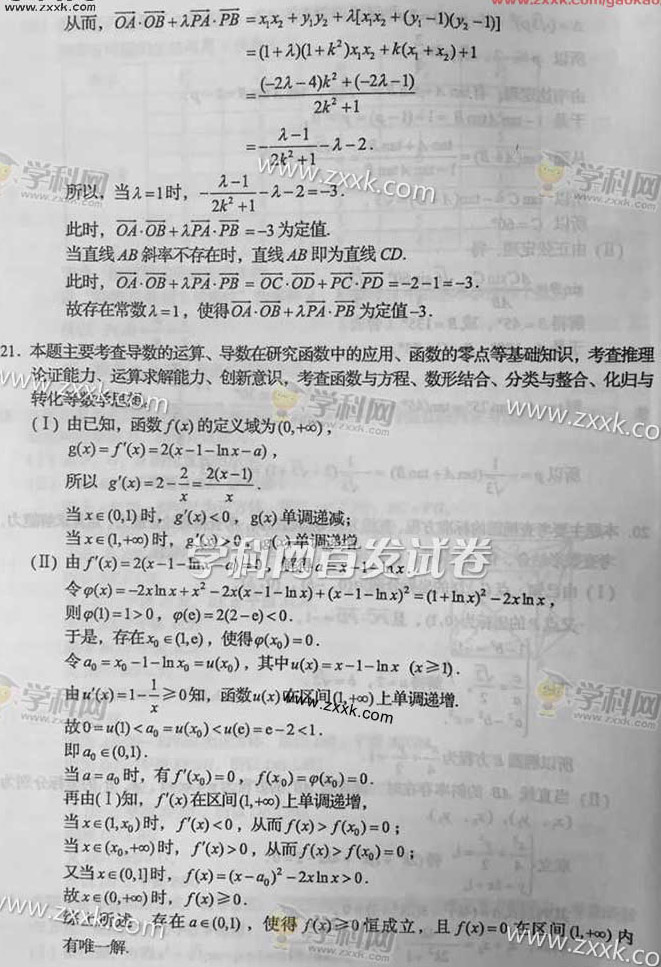 www.zxxk.com
www.zxxk.com/gaokao
从而，OA·OB+λPA·PB = x₁x₂+y₁y₂+λ[x₁x₂+(y₁-1)(y₂-1)]
=(1+λ)(1+k²)x₁x₂+k(x₁+x₂)+1
=((-2λ-4)k²+(-2λ-1))/(2k²+1)
=-(λ-1)/(2k²+1)-λ-2.
所以，当λ=1时，-(λ-1)/(2k²+1)-λ-2=-3.
此时，OA·OB+λPA·PB=-3为定值.
当直线AB斜率不存在时，直线AB即为直线CD.
此时，OA·OB+λPA·PB=OC·OD+PC·PD=-2-1=-3.
故存在常数λ=1，使得OA·OB+λPA·PB为定值-3.
21. 本题主要考查导数的运算、导数在研究函数中的应用、函数的零点等基础知识，考查推理
论证能力、运算求解能力、创新意识，考查函数与方程、数形结合、分类与整合、化归与
转化等数学思想.
(Ⅰ) 由已知，函数f(x)的定义域为(0,+∞)，
g(x)=f′(x)=2(x-1-lnx-a)，
所以 g′(x)=2-2/x=2(x-1)/x.
当x∈(0,1)时，g′(x)<0，g(x)单调递减；
当x∈(1,+∞)时，g′(x)>0，g(x)单调递增.
(Ⅱ) 由f′(x)=2(x-1-lnx-a)=0，解得a=x-1-lnx.
令φ(x)=-2xlnx+x²-2x(x-1-lnx)+(x-1-lnx)²=(1+lnx)²-2xlnx，
则φ(1)=1>0，φ(e)=2(2-e)<0.
于是，存在x₀∈(1,e)，使得φ(x₀)=0.
令a₀=x₀-1-lnx₀=u(x₀)，其中u(x)=x-1-lnx (x≥1).
由u′(x)=1-1/x≥0知，函数u(x)在区间(1,+∞)上单调递增.
故0=u(1)<a₀=u(x₀)<u(e)=e-2<1.
即a₀∈(0,1).
当a=a₀时，有f′(x₀)=0，f(x₀)=φ(x₀)=0.
再由(Ⅰ)知，f′(x)在区间(1,+∞)上单调递增，
当x∈(1,x₀)时，f′(x)<0，从而f(x)>f(x₀)=0；
当x∈(x₀,+∞)时，f′(x)>0，从而f(x)>f(x₀)=0；
又当x∈(0,1]时，f(x)=(x-a₀)²-2xlnx>0.
故x∈(0,+∞)时，f(x)≥0.
综上所述，存在a∈(0,1)，使得f(x)≥0恒成立，且f(x)=0在区间(1,+∞)内
有唯一解.
学科网
www.zxxk.com
学科网首发试卷